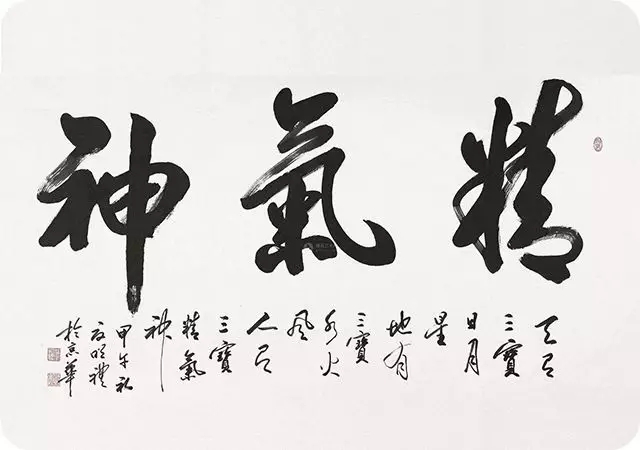 精氣神
天有
三寶
日月
星
地有
三寶
水火
風
人有
三寶
精氣
神
甲午
於京華